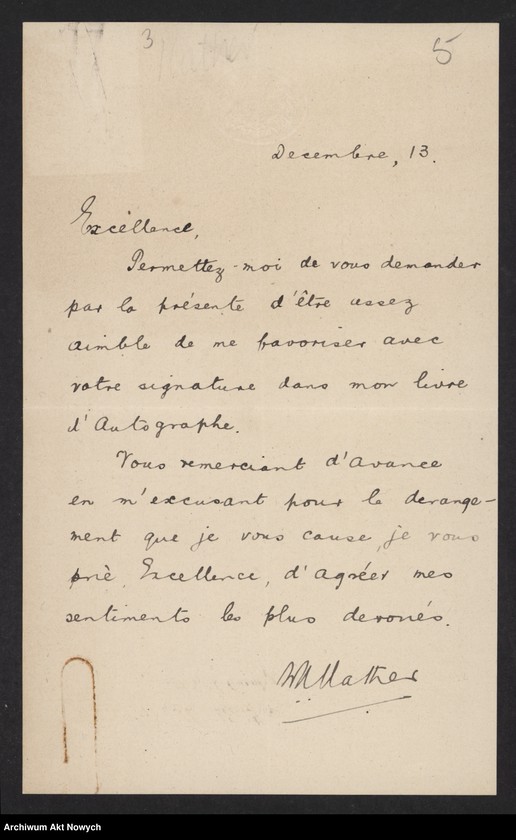 3
5
Decembre, 13.
Excéllence,
Permettez-moi de vous demander
par la présente d'être assez
aimble de me favoriser avec
votre signature dans mon livre
d'Autographe.
Vous remerciant d'avance
en m'excusant pour le derange-
ment que je vous cause, je vous
priè, Excellence, d'agréer mes
sentiments les plus devoués.
WMather
Archiwum Akt Nowych